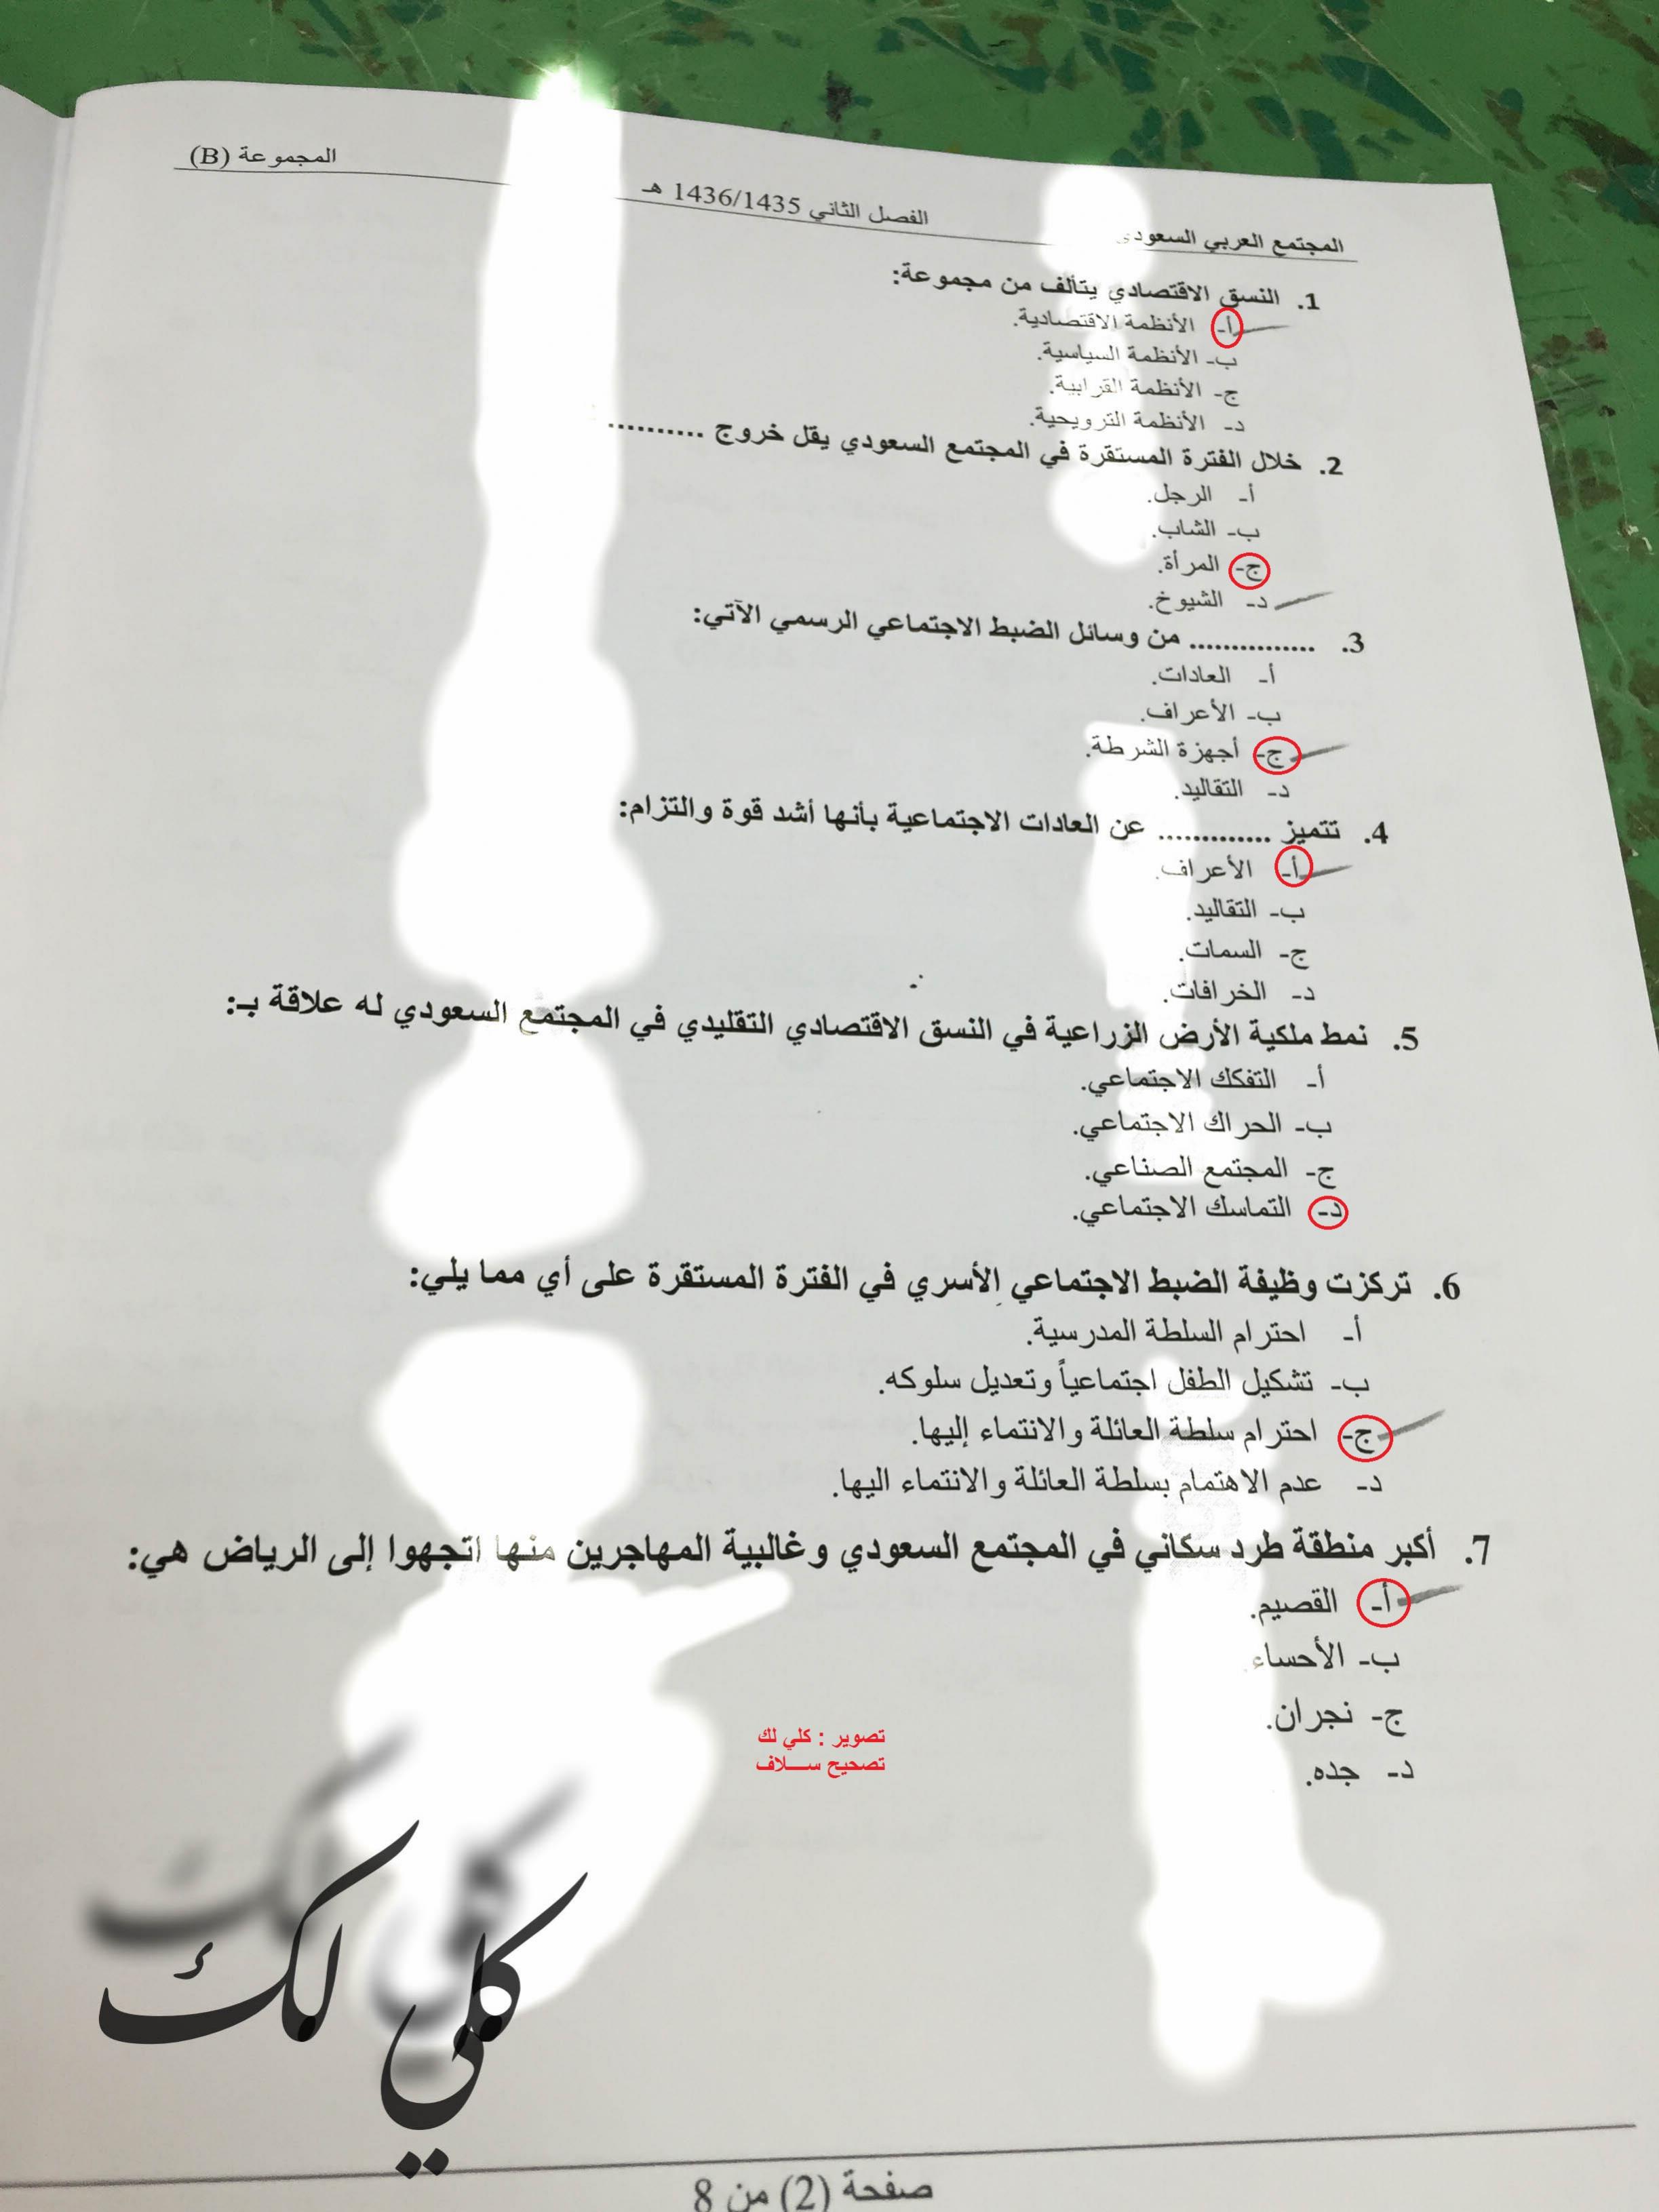 المجتمع العربي السعودي
الفصل الثاني 1436/1435 هـ
المجموعة (B)
1. النسق الاقتصادي يتألف من مجموعة:
أ- الأنظمة الاقتصادية.
ب- الأنظمة السياسية.
ج- الأنظمة القرابية.
د- الأنظمة الترويحية.
2. خلال الفترة المستقرة في المجتمع السعودي يقل خروج ..........
أ- الرجل.
ب- الشاب.
ج- المرأة.
د- الشيوخ.
3. ............... من وسائل الضبط الاجتماعي الرسمي الآتي:
أ- العادات.
ب- الأعراف.
ج- أجهزة الشرطة.
د- التقاليد.
4. تتميز ............. عن العادات الاجتماعية بأنها أشد قوة والتزام:
أ- الأعراف.
ب- التقاليد.
ج- السمات.
د- الخرافات.
5. نمط ملكية الأرض الزراعية في النسق الاقتصادي التقليدي في المجتمع السعودي له علاقة بـ:
أ- التفكك الاجتماعي.
ب- الحراك الاجتماعي.
ج- المجتمع الصناعي.
د- التماسك الاجتماعي.
6. تركزت وظيفة الضبط الاجتماعي الأسري في الفترة المستقرة على أي مما يلي:
أ- احترام السلطة المدرسية.
ب- تشكيل الطفل اجتماعياً وتعديل سلوكه.
ج- احترام سلطة العائلة والانتماء إليها.
د- عدم الاهتمام بسلطة العائلة والانتماء اليها.
7. أكبر منطقة طرد سكاني في المجتمع السعودي وغالبية المهاجرين منها اتجهوا إلى الرياض هي:
أ- القصيم.
ب- الأحساء.
ج- نجران.
د- جده.
تصوير : كلي لك
تصحيح ســـلاف
كلي لك
صفحة (2) من 8